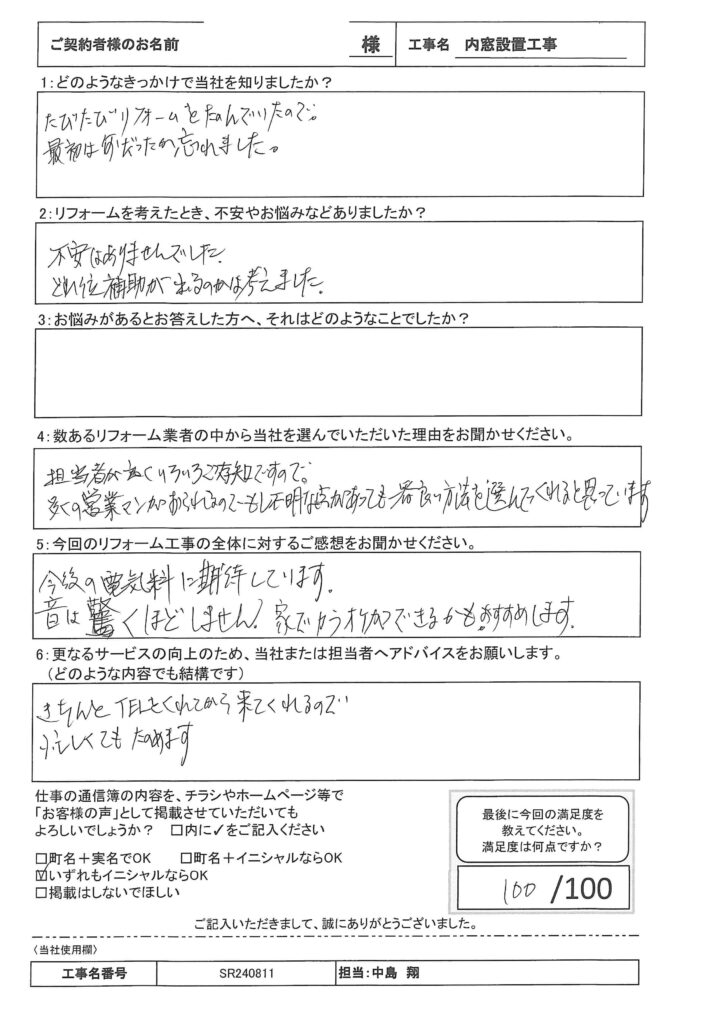 ご契約者様のお名前 様 工事名 内窓設置工事
1：どのようなきっかけで当社を知りましたか？
たびたびリフォームをたのんでいたので。
最初は何だったか忘れました。
2：リフォームを考えたとき、不安やお悩みなどありましたか？
不安はありませんでした。
どれ位補助が出るのかは考えました。
3：お悩みがあるとお答えした方へ、それはどのようなことでしたか？
4：数あるリフォーム業者の中から当社を選んでいただいた理由をお聞かせください。
担当者がよくいろいろご存知ですので。
多くの営業マンがおられるので、もし不明な点があっても一番良い方法を選んでくれると思っています
5：今回のリフォーム工事の全体に対するご感想をお聞かせください。
今後の電気料に期待しています。
音は驚くほどしません！家でカラオケができるかも。おすすめします。
6：更なるサービスの向上のため、当社または担当者へアドバイスをお願いします。
（どのような内容でも結構です）
きちんとTELをくれてから来てくれるので
忙しくてもたのめます
仕事の通信簿の内容を、チラシやホームページ等で
「お客様の声」として掲載させていただいても
よろしいでしょうか？ □内に✓をご記入ください
□町名＋実名でOK □町名＋イニシャルならOK
☑いずれもイニシャルならOK
□掲載はしないでほしい
最後に今回の満足度を
教えてください。
満足度は何点ですか？
100 /100
ご記入いただきまして、誠にありがとうございました。
〈当社使用欄〉
工事名番号 SR240811 担当：中島 翔